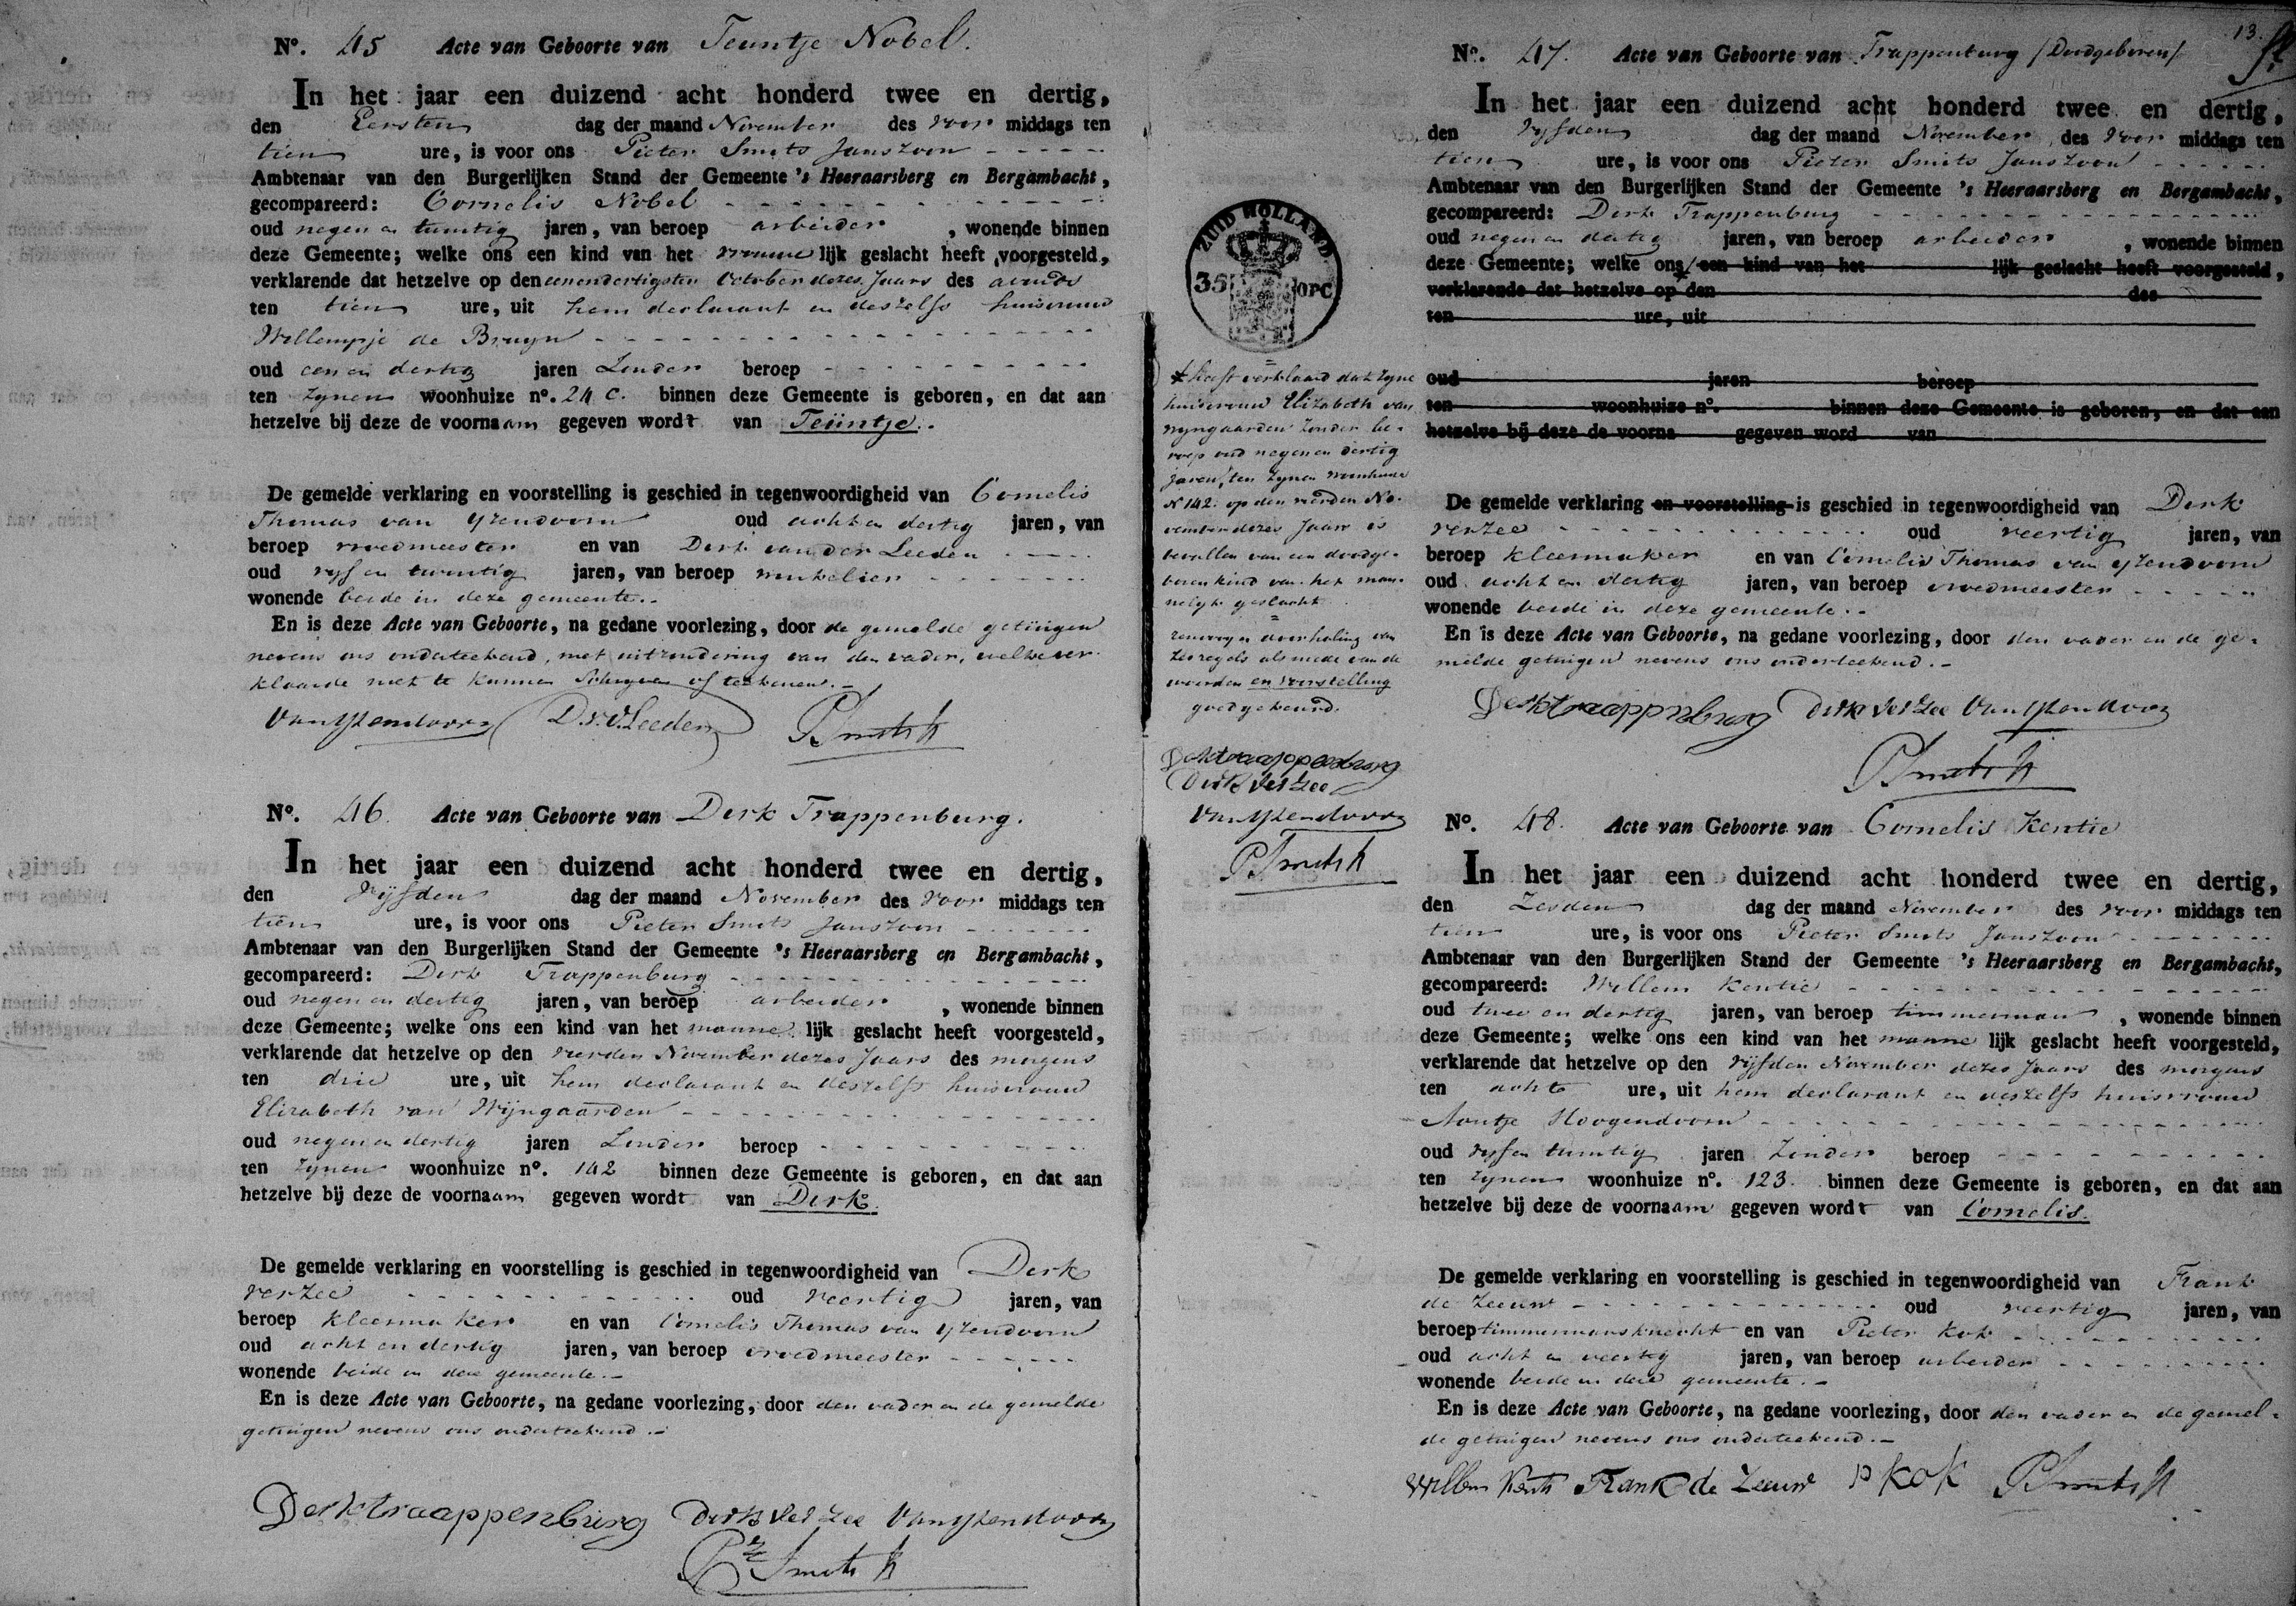 Nº. 45 Acte van Geboorte van Teuntje Nobel.
In het jaar een duizend acht honderd twee en dertig,
den Eersten dag der maand November des voor middags ten
tien ure, is voor ons Pieter Smits Janszoon
Ambtenaar van den Burgerlijken Stand der Gemeente 's Heeraarsberg en Bergambacht,
gecompareerd: Cornelis Nobel
oud negen en twintig jaren, van beroep arbeider, wonende binnen
deze Gemeente; welke ons een kind van het vrouwe lijk geslacht heeft voorgesteld,
verklarende dat hetzelve op den eenendertigsten October dezes Jaars des avonds
ten tien ure, uit hem declarant en deszelfs huisvrouw
Willempje de Bruyn
oud een en dertig jaren Zonder beroep
ten zynen woonhuize nº. 24 C. binnen deze Gemeente is geboren, en dat aan
hetzelve bij deze de voornaam gegeven wordt van Teuntje.
De gemelde verklaring en voorstelling is geschied in tegenwoordigheid van Cornelis
Thomas van Yzendoorn oud acht en dertig jaren, van
beroep vroedmeester en van Dirk van der Leeden
oud vyf en twintig jaren, van beroep winkelier
wonende beide in deze gemeente.
En is deze Acte van Geboorte, na gedane voorlezing, door de gemelde getuigen
nevens ons onderteekend, met uitzondering van den vader, welke ver-
klaarde niet te kunnen Schryven of teekenen.
Van Yzendoorn D. v. d. Leeden P Smits Jz
Nº. 46. Acte van Geboorte van Dirk Trappenburg.
In het jaar een duizend acht honderd twee en dertig,
den Vyfden dag der maand November des voor middags ten
tien ure, is voor ons Pieter Smits Janszoon
Ambtenaar van den Burgerlijken Stand der Gemeente 's Heeraarsberg en Bergambacht,
gecompareerd: Dirk Trappenburg
oud negen en dertig jaren, van beroep arbeider, wonende binnen
deze Gemeente; welke ons een kind van het manne lijk geslacht heeft voorgesteld,
verklarende dat hetzelve op den vierden November dezes Jaars des morgens
ten drie ure, uit hem declarant en deszelfs huisvrouw
Elizabeth van Wijngaarden
oud negen en dertig jaren Zonder beroep
ten zynen woonhuize nº. 142 binnen deze Gemeente is geboren, en dat aan
hetzelve bij deze de voornaam gegeven wordt van Dirk.
De gemelde verklaring en voorstelling is geschied in tegenwoordigheid van Dirk
verzee oud veertig jaren, van
beroep kleermaker en van Cornelis Thomas van Yzendoorn
oud acht en dertig jaren, van beroep vroedmeester
wonende beide in deze gemeente.
En is deze Acte van Geboorte, na gedane voorlezing, door den vader en de gemelde
getuigen nevens ons onderteekend.
Derk traappenburg Dirk Verzee Van Yzendoorn
Pr Smits Jz
13.
Nº. 47. Acte van Geboorte van Trappenburg /Doodgeboren/
In het jaar een duizend acht honderd twee en dertig,
den vyfden dag der maand November des voor middags ten
tien ure, is voor ons Pieter Smits Janszoon
Ambtenaar van den Burgerlijken Stand der Gemeente 's Heeraarsberg en Bergambacht,
gecompareerd: Dirk Trappenburg
oud negen en dertig jaren, van beroep arbeider, wonende binnen
deze Gemeente; welke ons een kind van het lijk geslacht heeft voorgesteld,
verklarende dat hetzelve op den des
ten ure, uit
oud jaren beroep
ten woonhuize nº. binnen deze Gemeente is geboren, en dat aan
hetzelve bij deze de voorna gegeven word van
De gemelde verklaring en voorstelling is geschied in tegenwoordigheid van Dirk
verzee oud veertig jaren, van
beroep kleermaker en van Cornelis Thomas van Yzendoorn
oud acht en dertig jaren, van beroep vroedmeester
wonende beide in deze gemeente.
En is deze Acte van Geboorte, na gedane voorlezing, door den vader en de ge-
melde getuigen nevens ons onderteekend.
Derk traappenburg Dirk Verzee Van Yzendoorn
P Smits Jz
ZUID HOLLAND
35 OPC
* heeft verklaard dat zyne
huisvrouw Elizabeth van
Wyngaarden Zonder be-
roep oud negen en dertig
jaren, ten zynen woonhuize
N 142. op den vierden No-
vember dezes Jaars is
bevallen van een doodge-
boren kind van het man-
nelyk geslacht
renvooy en doorhaling van
zes regels als mede van de
woorden en voorstelling
goedgekeurd.
Derk traappenburg
Dirk Verzee
Van Yzendoorn
P Smits Jz
Nº. 48. Acte van Geboorte van Cornelis Kentie
In het jaar een duizend acht honderd twee en dertig,
den Zesden dag der maand November des voor middags ten
tien ure, is voor ons Pieter Smits Janszoon
Ambtenaar van den Burgerlijken Stand der Gemeente 's Heeraarsberg en Bergambacht,
gecompareerd: Willem Kentie
oud twee en dertig jaren, van beroep timmerman, wonende binnen
deze Gemeente; welke ons een kind van het manne lijk geslacht heeft voorgesteld,
verklarende dat hetzelve op den vyfden November dezes Jaars des morgens
ten acht ure, uit hem declarant en deszelfs huisvrouw
Aantje Hoogendoorn
oud vyf en twintig jaren Zonder beroep
ten zynen woonhuize nº. 123. binnen deze Gemeente is geboren, en dat aan
hetzelve bij deze de voornaam gegeven wordt van Cornelis.
De gemelde verklaring en voorstelling is geschied in tegenwoordigheid van Frank
de Zeeuw oud veertig jaren, van
beroep timmermansknecht en van Pieter Kok
oud acht en veertig jaren, van beroep arbeider
wonende beide in deze gemeente.
En is deze Acte van Geboorte, na gedane voorlezing, door den vader en de gemel-
de getuigen nevens ons onderteekend.
Willem Kentie Frank de Zeeuw P Kok P Smits Jz